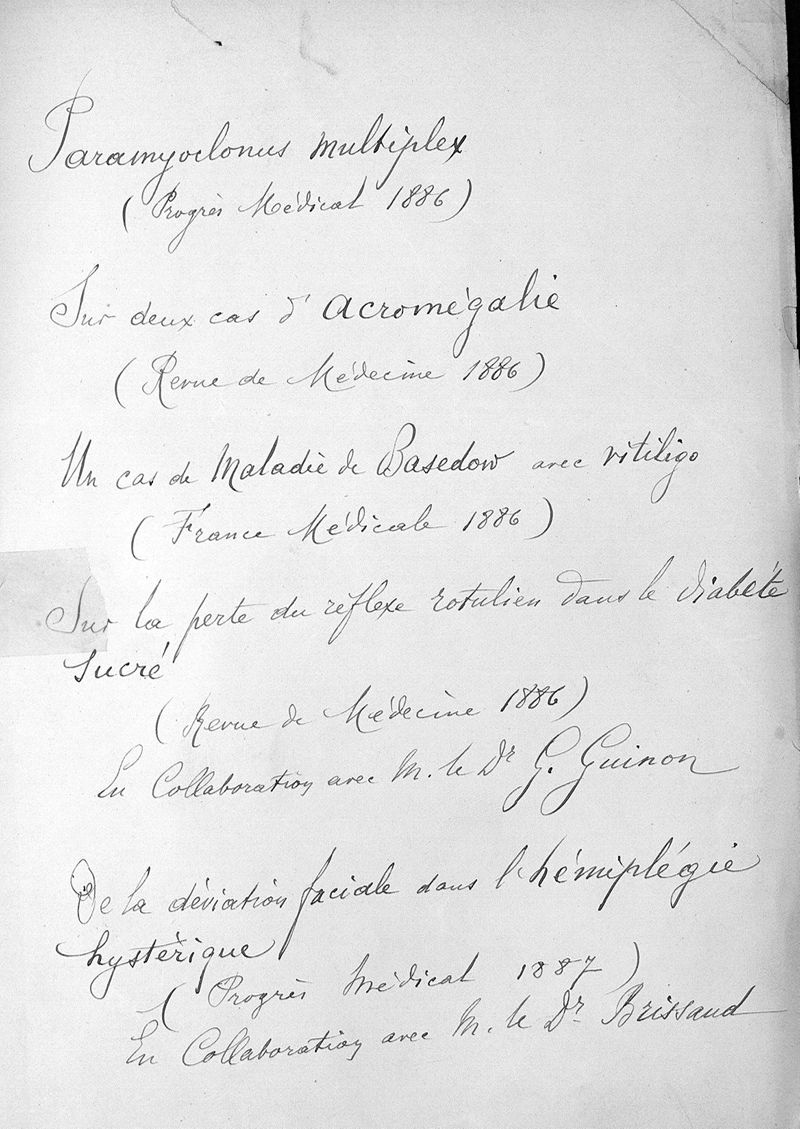 Paramyoclonus multiplex
(Progrès Médical 1886)
Sur deux cas d'acromégalie
(Revue de Médecine 1886)
Un cas de Maladie de Basedow avec vitiligo
(France Médicale 1886)
Sur la perte du réflexe rotulien dans le diabète
sucré
(Revue de Médecine 1886)
En Collaboration avec M. le Dr G. Guinon
De la déviation faciale dans l'hémiplégie
hystérique
(Progrès médical 1887)
En Collaboration avec M. le Dr Brissaud